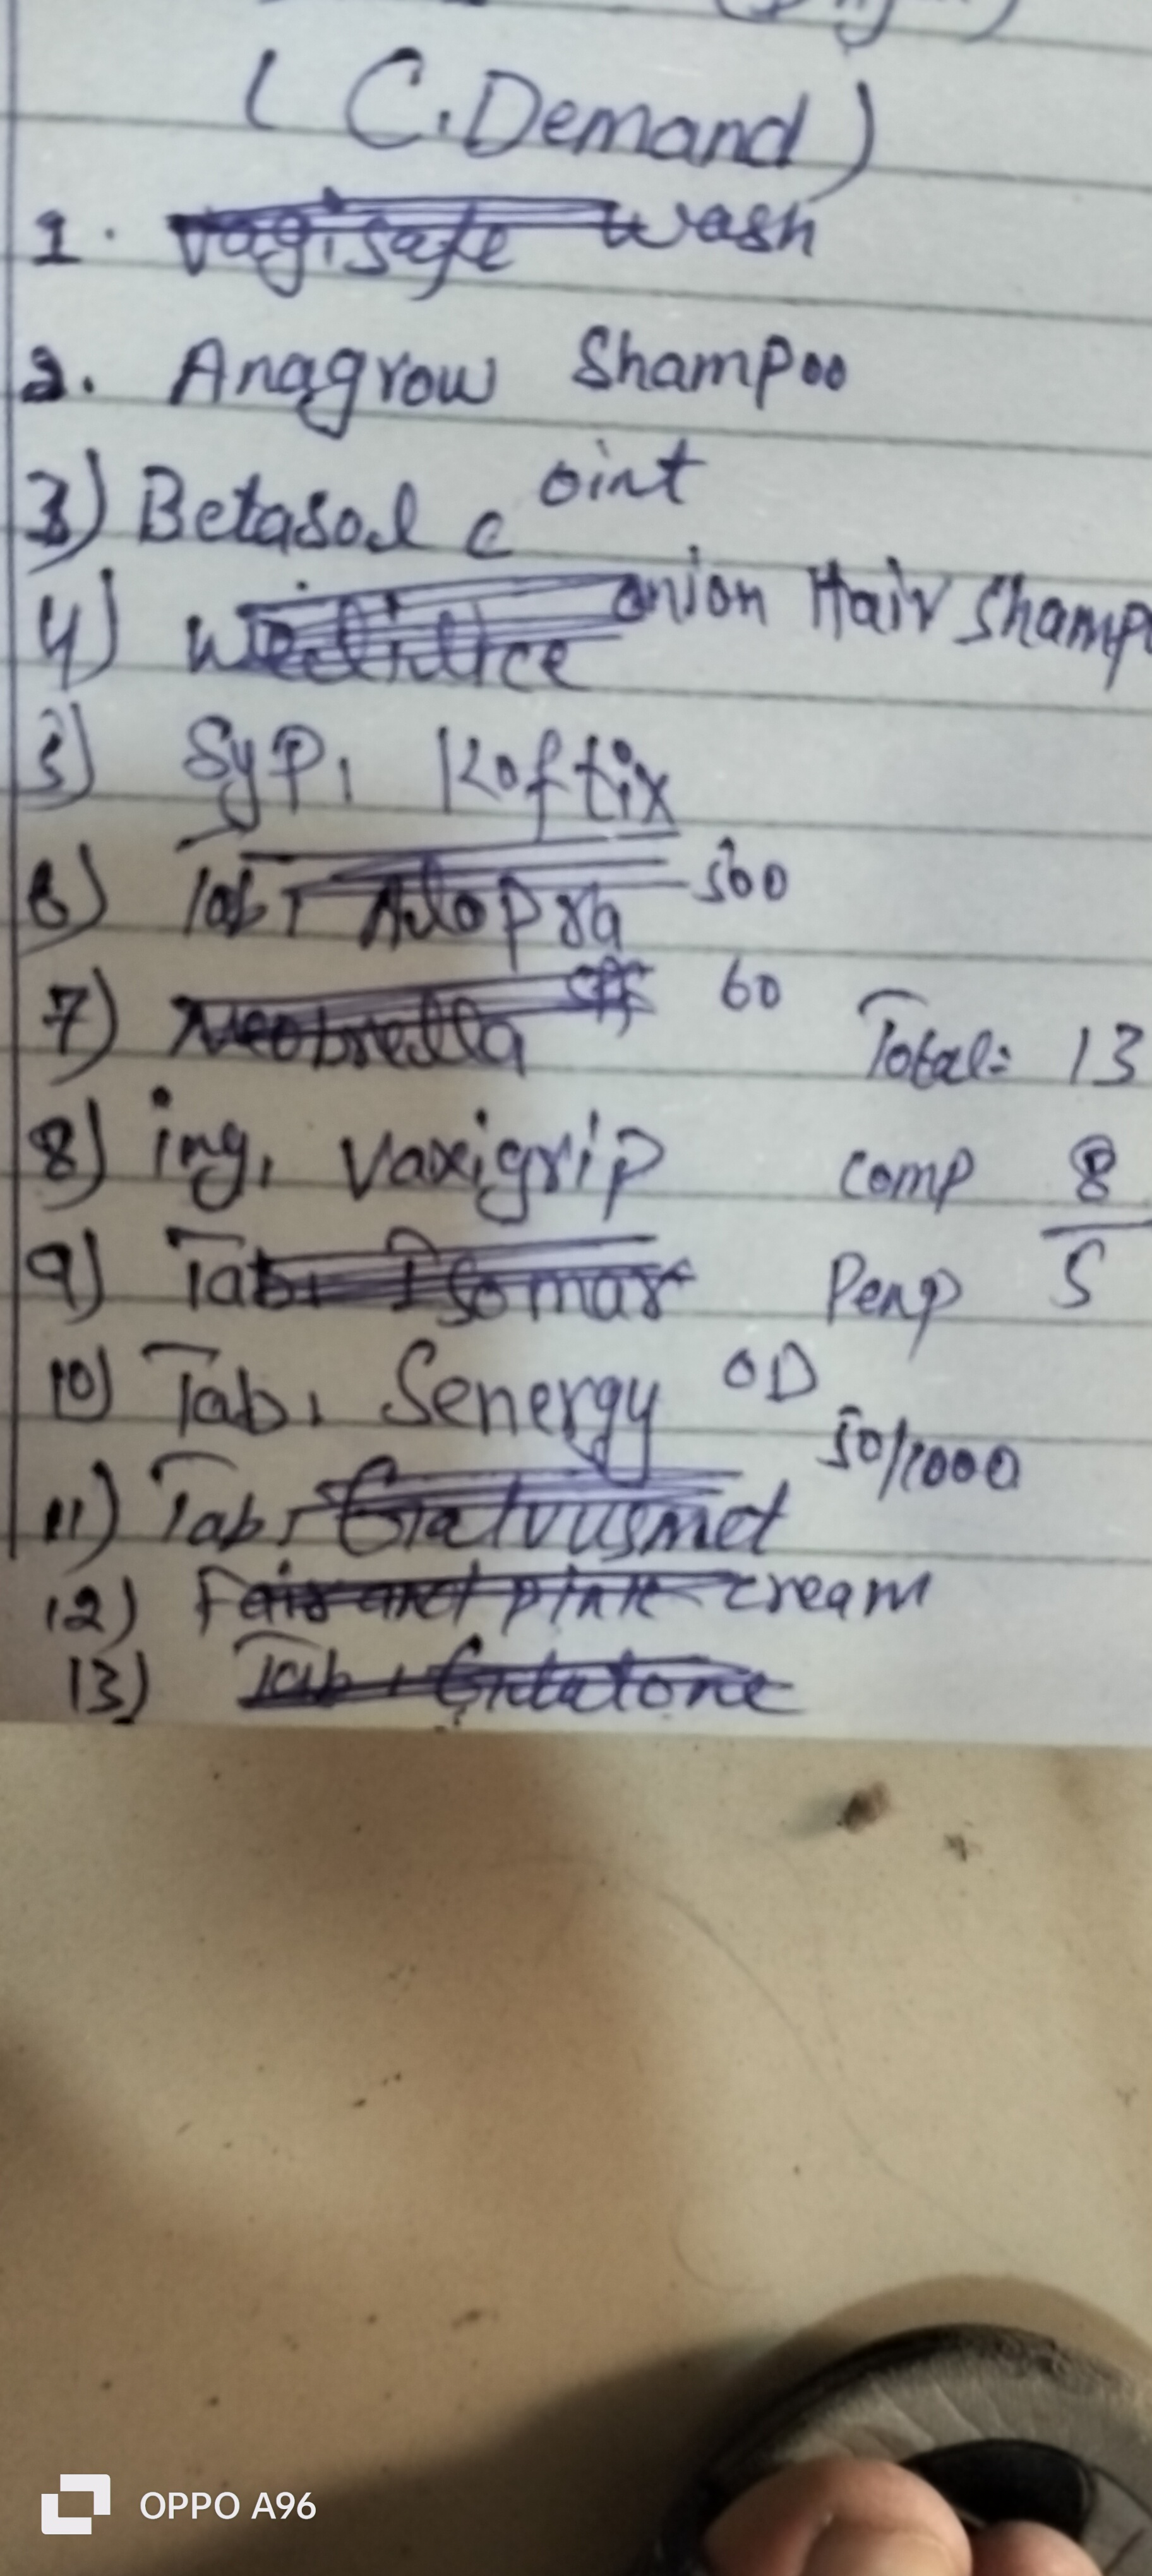 ( C. Demand )
1. Vagisafe wash
2. Anagrow Shampoo
3) Betasol c oint
4) onion Hair Shamp
5) Syp, Koftix
6) Tab, 500
7) 60
Total= 13
8) inj, Vaxigrip
comp 8
9) Tab, Isomar
Penp 5
10) Tab, Senergy OD
50/1000
11) Tab, Galvusmet
12) Fair and pink cream
13) Tab,
OPPO A96